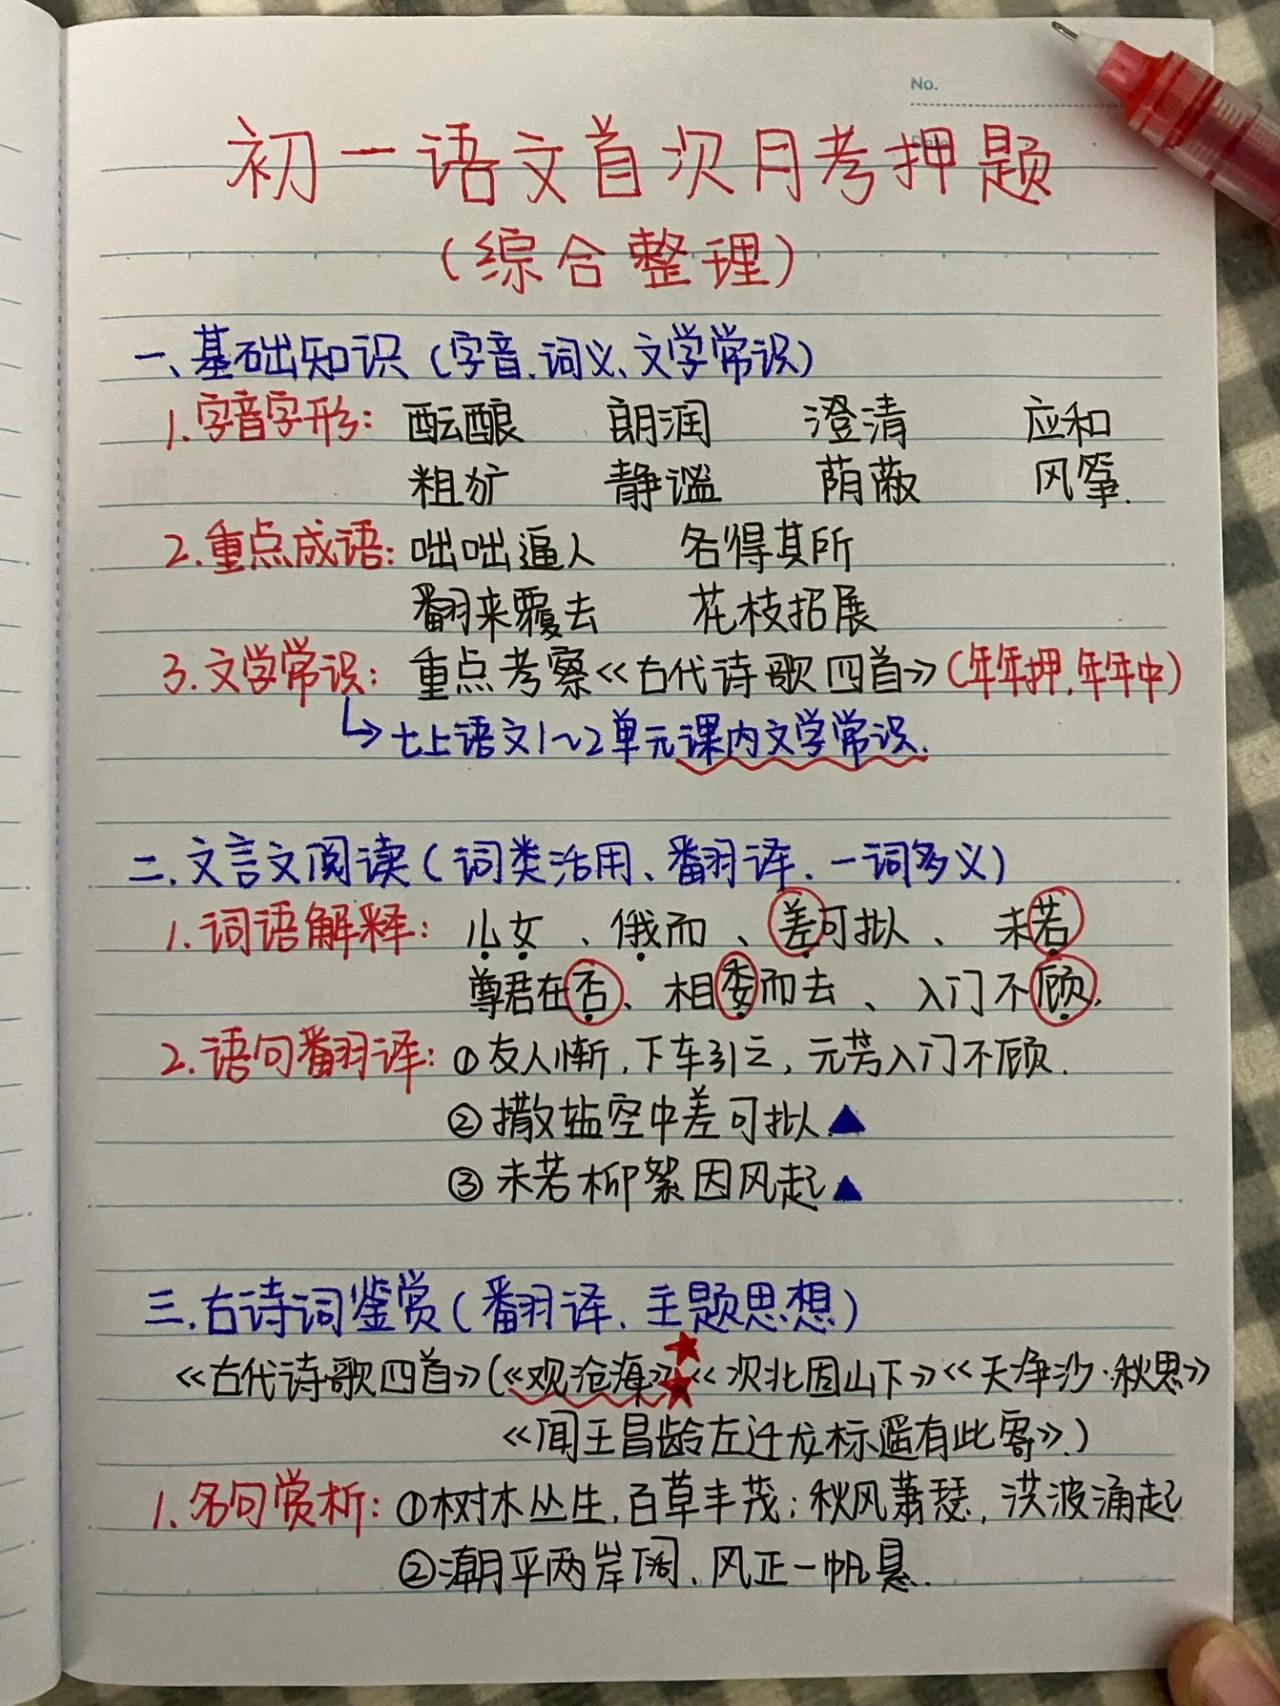 No.
初一语文首次月考押题
(综合整理)
一、基础知识(字音、词义、文学常识)
1.字音字形: 酝酿 朗润 澄清 应和
粗犷 静谧 荫蔽 风筝.
2.重点成语: 咄咄逼人 各得其所
翻来覆去 花枝招展
3.文学常识: 重点考察《古代诗歌四首》(年年押,年年中)
↳七上语文1~2单元课内文学常识.
二、文言文阅读(词类活用、翻译、一词多义)
1.词语解释: 儿女、俄而、差可拟、未若
尊君在否、相委而去、入门不顾.
2.语句翻译: ①友人惭,下车引之,元芳入门不顾.
②撒盐空中差可拟▲
③未若柳絮因风起▲
三、古诗词鉴赏(翻译、主题思想)
《古代诗歌四首》(《观沧海》★★《次北固山下》《天净沙·秋思》
《闻王昌龄左迁龙标遥有此寄》)
1.名句赏析: ①树木丛生,百草丰茂;秋风萧瑟,洪波涌起
②潮平两岸阔,风正一帆悬.